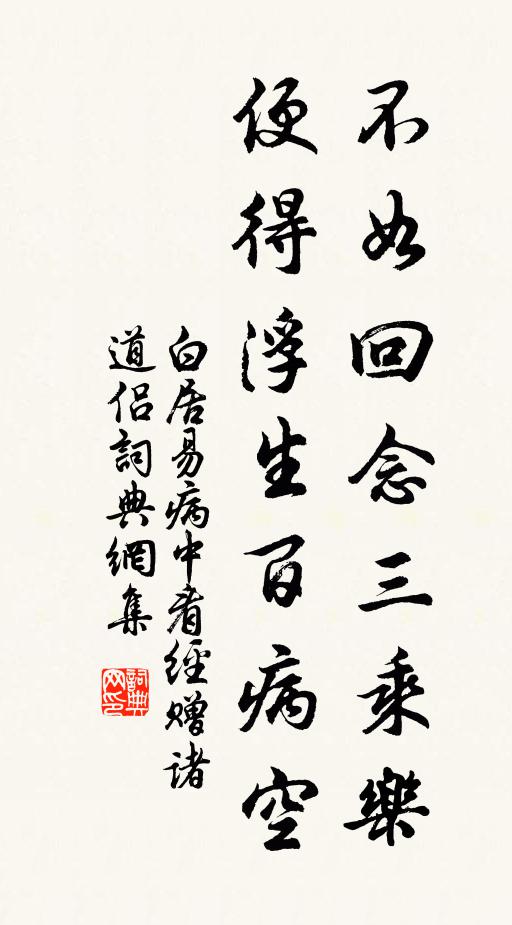 不如回念三乘樂
便得浮生百病空
白居易病中看經贈諸
道侶詞典網集
詞典網印